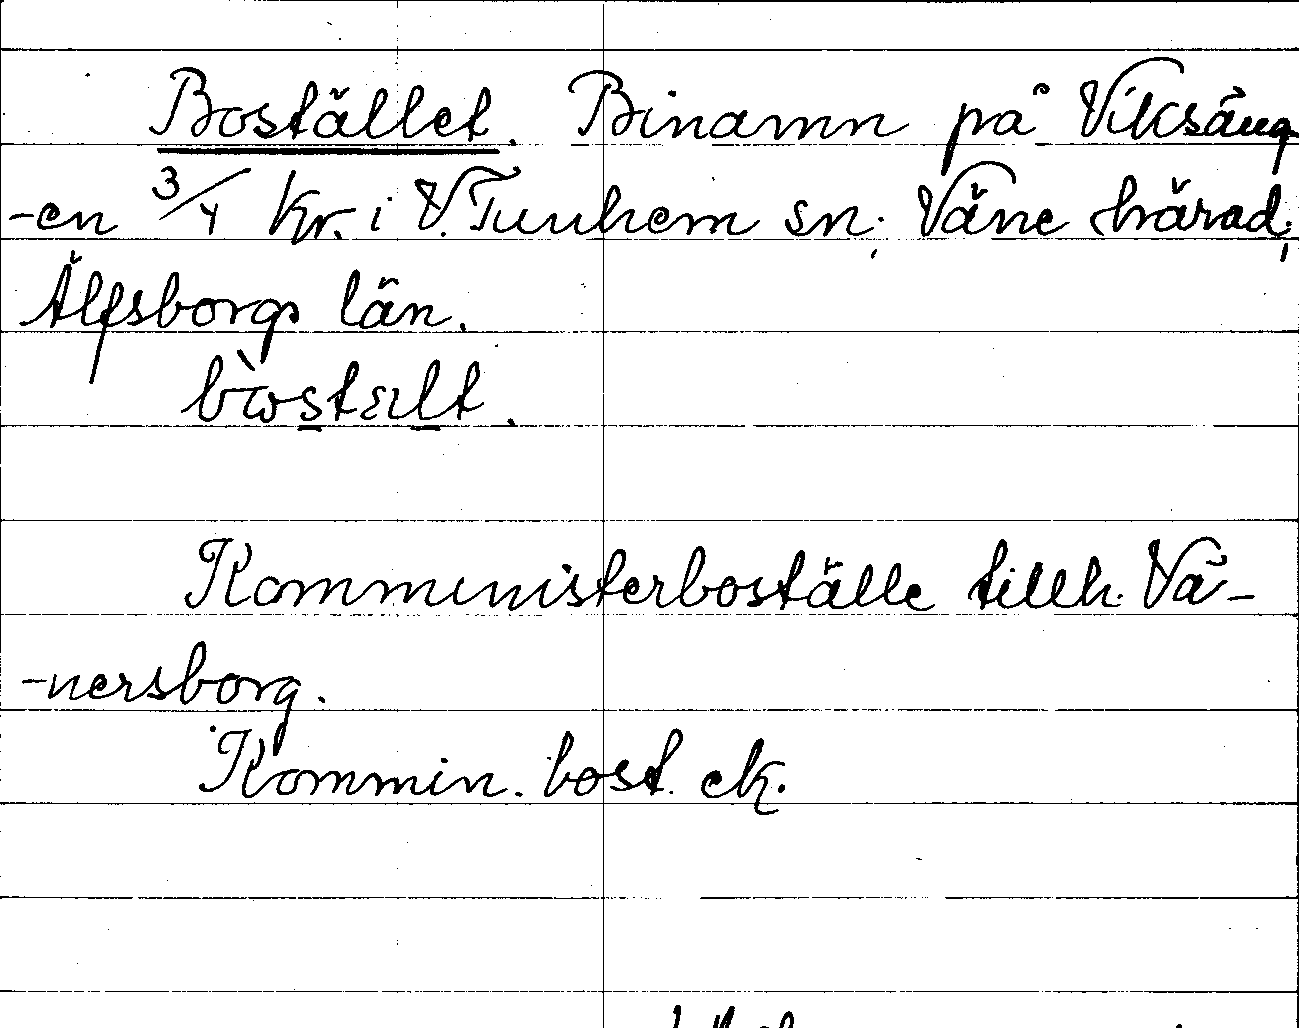 Bostället. Binamn på Viksäng
-en 3/4 kr. i V. Tunhem sn; Väne härad;
Älfsborgs län.
Kommunisterboställe tillh. Vä-
-nersborg.
Kommin. bost. ek.